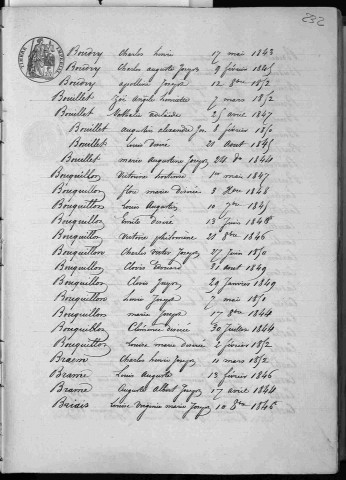 292
TIMBRE IMPERIAL
Boudry Charles Louis 17 mai 1843
Boudry Charles auguste Joseph 9 février 1845
Boudry apolline Joseph 12 8bre 1852
Bouillet Zoé Angèle 7 mars 1852
Bouillet Nathalie adelaïde 25 avril 1847
Bouillet augustin alexandre 8 février 1850
Bouillet Louis 21 Aout 1845
Bouillet marie augustine Joseph 24 do 1844
Bouquillon Victoire hortense 1er mai 1847
Bouquillon flore marie désirée 3 1848
Bouquillon Louis Augustin 10 7bre 1845
Bouquillon Emile désiré 13 Juin 1848
Bouquillon Victoire philomène 21 8bre 1846
Bouquillon Charles victor Joseph 27 Juin 1850
Bouquillon Clovis Edouard 31 aout 1849
Bouquillon Clovis Joseph 29 Janvier 1849
Bouquillon Louis Joseph 7 mai 1850
Bouquillon marie Joseph 17 8bre 1844
Bouquillon Clémence désirée 30 Juillet 1844
Bouquillon Louise marie désirée 2 février 1852
Braem Charles Louis Joseph 10 mars 1852
Brame Louis Auguste 13 février 1846
Brame Auguste Albert Joseph 17 avril 1844
Briais Louise virginie marie Joseph 10 8bre 1846